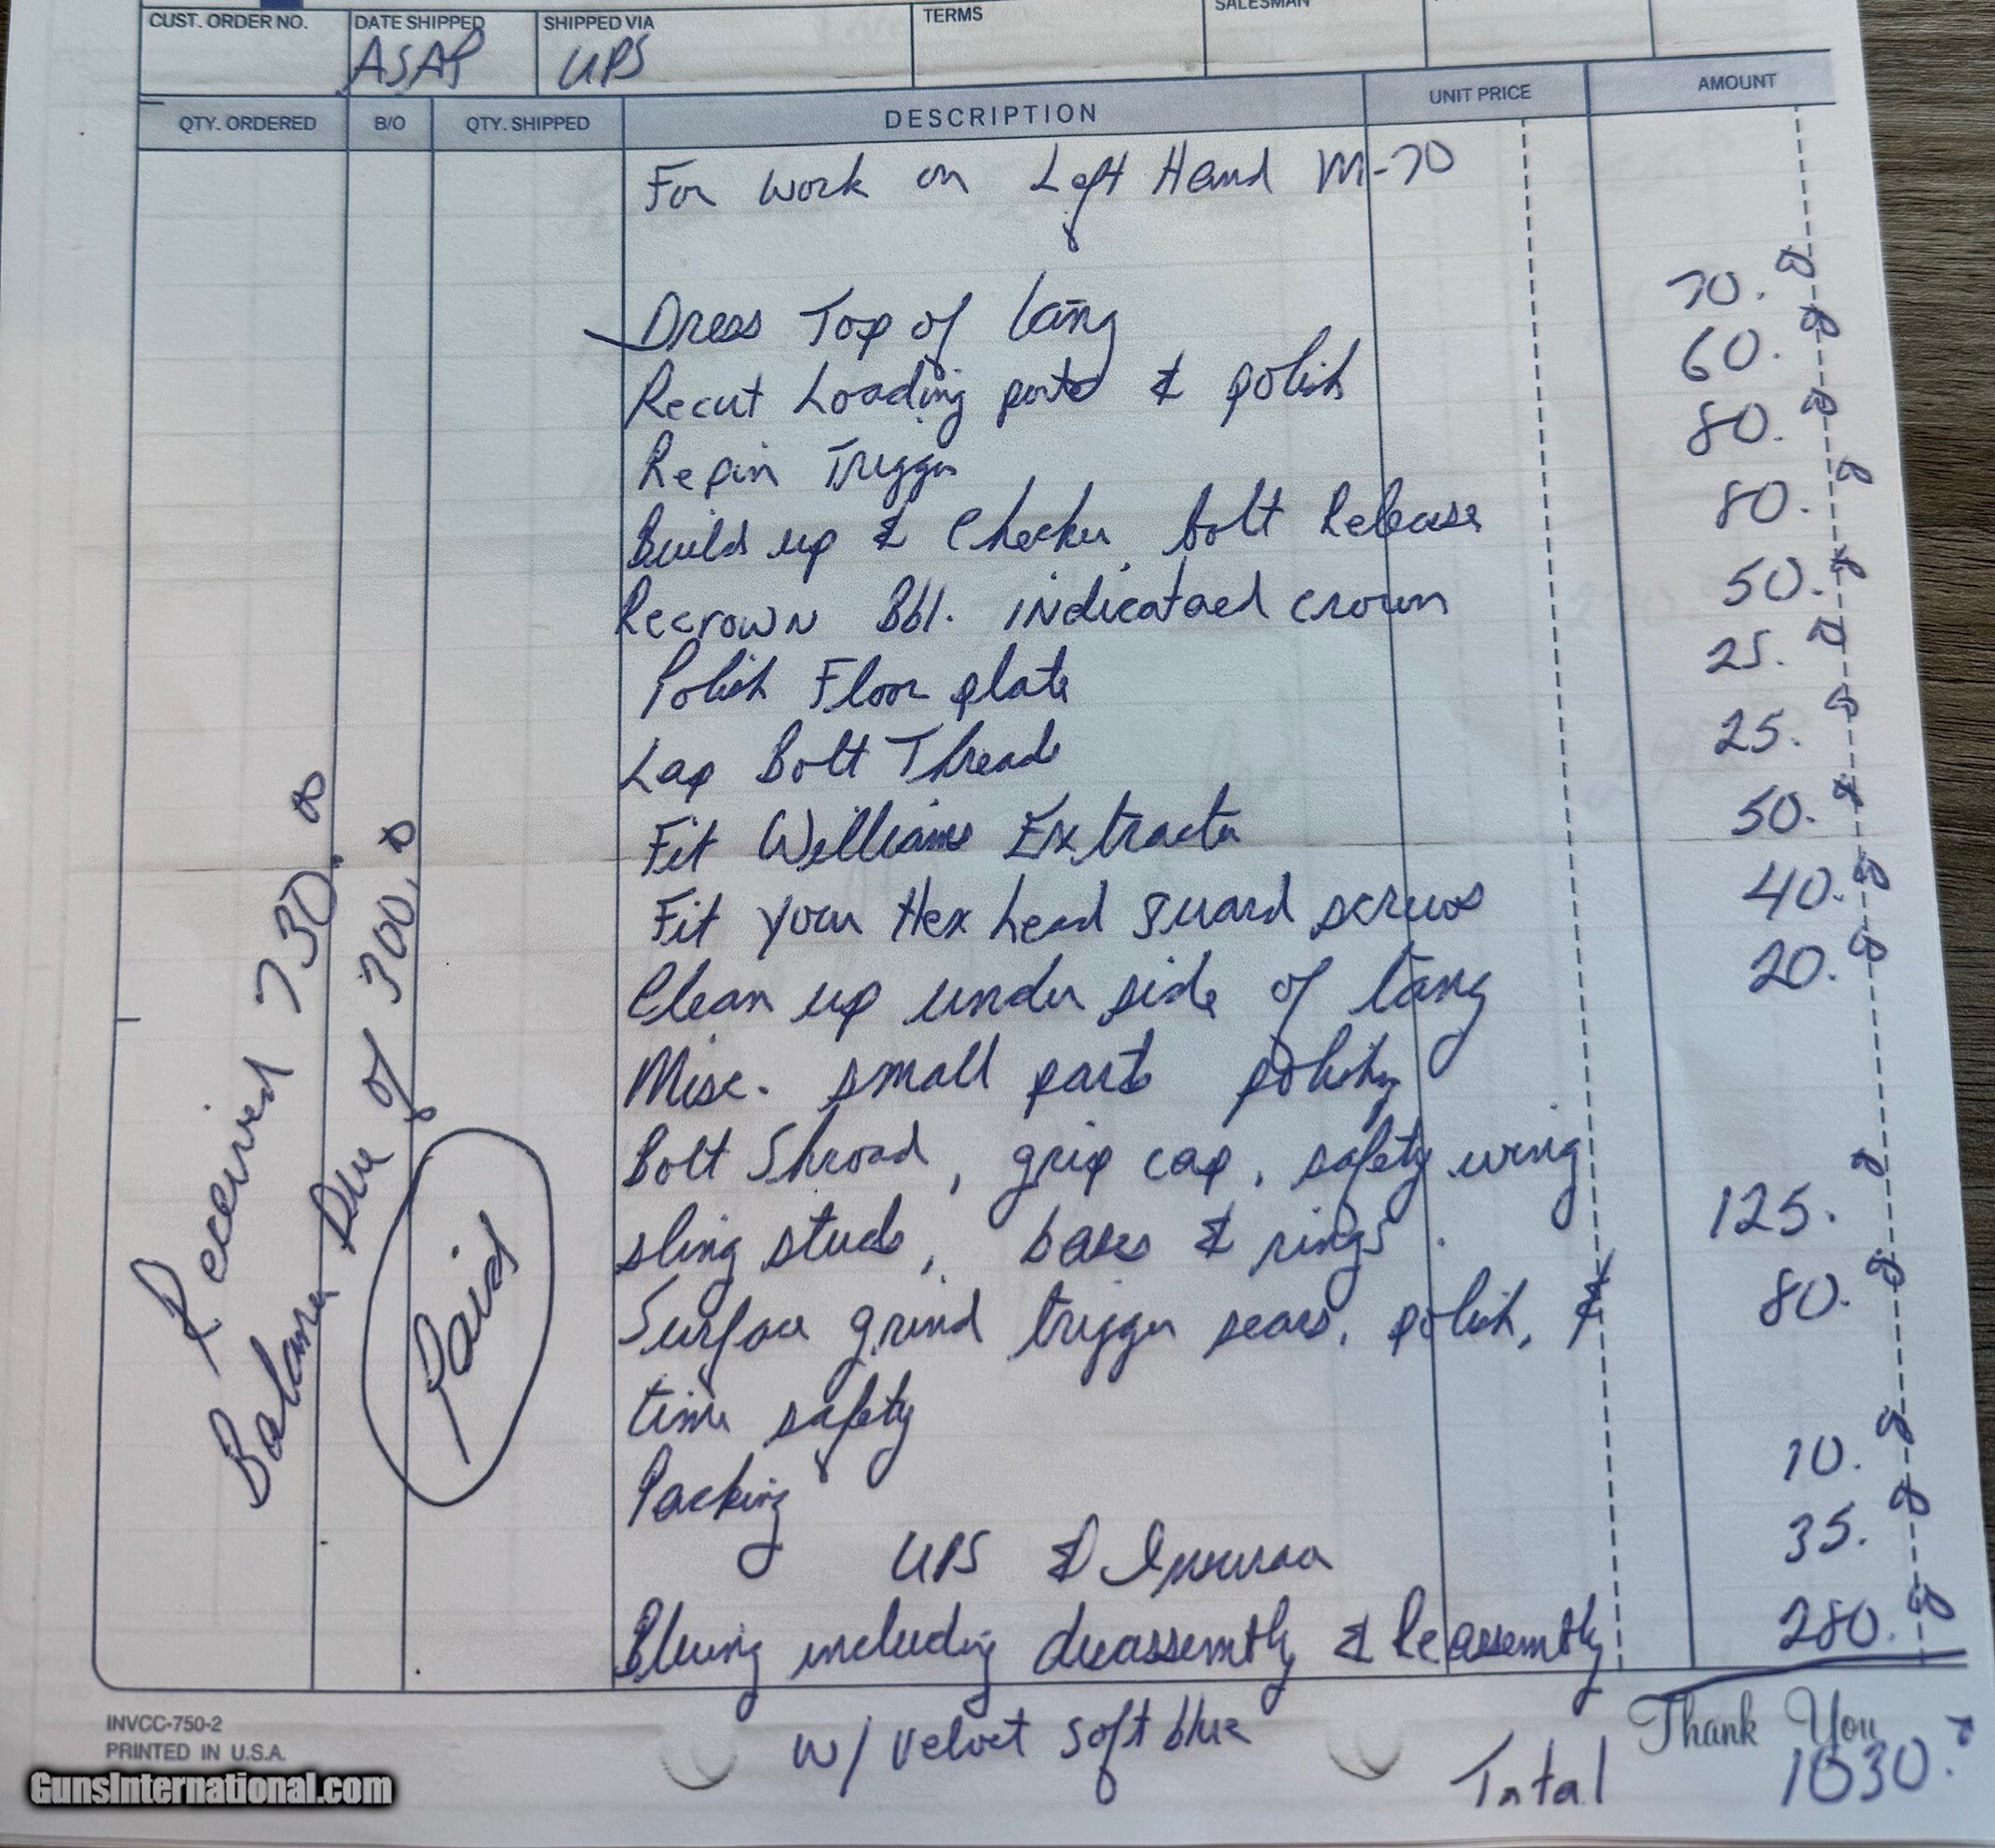 CUST. ORDER NO. DATE SHIPPED SHIPPED VIA TERMS SALESMAN
ASAP UPS
QTY. ORDERED B/O QTY. SHIPPED DESCRIPTION UNIT PRICE AMOUNT
For work on Left Hand M-70
Dress Top of tang 70.00
Recut Loading ports & polish 60.00
Repin Trigger 80.00
Build up & Checker bolt Release 80.00
Recrown Bbl. indicataed crown 50.00
Polish Floor plate 25.00
Lap Bolt Threads 25.00
Fit Williams Extractor 50.00
Fit your Hex head guard screws 40.00
Clean up under side of tang 20.00
Misc. small parts polishing
Bolt Shroud, grip cap, safety wing
sling studs, bases & rings. 125.00
Surface grind trigger sears, polish, & 80.00
time safety
Packing 10.00
UPS & Insurance 35.00
Bluing including disassembly & Reassembly 280.00
w/ Velvet soft blue
Thank You
Total 1030.00
Received 730.00
Balance Due of 300.00
Paid
INVCC-750-2
PRINTED IN U.S.A.
GunsInternational.com